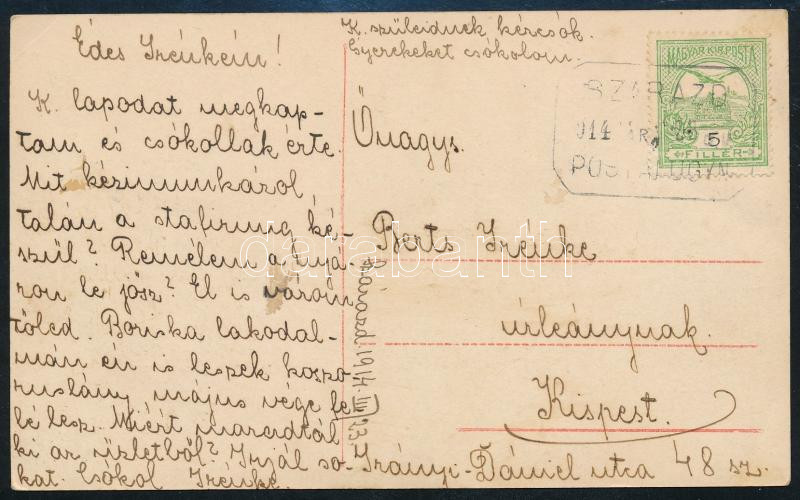 Edes Irénkém!
K. lapodat megkap-
tam és csókollak érte.
Mit kézimunkázol
talán a stafirung ké-
szül? Remélem a nyá-
ron le jösz? El is várom
tőled. Boriska lakodal-
mán én is leszek koszo-
ruslány május vége fe
lé lesz. Miért maradtál
ki az üzletből? Irjál so-
kat. Csókol Irénke.
K. szüleidnek kézcsók.
Gyerekeket csókolom.
MAGYAR KIR. POSTA
5
FILLÉR
SZÁRAZD
914
Önagys.
Berts Irénke
úrleánynak.
Kispest.
Irányi-Dániel utca 48 sz.
Szárazd. 1914. III 23.
darabanth